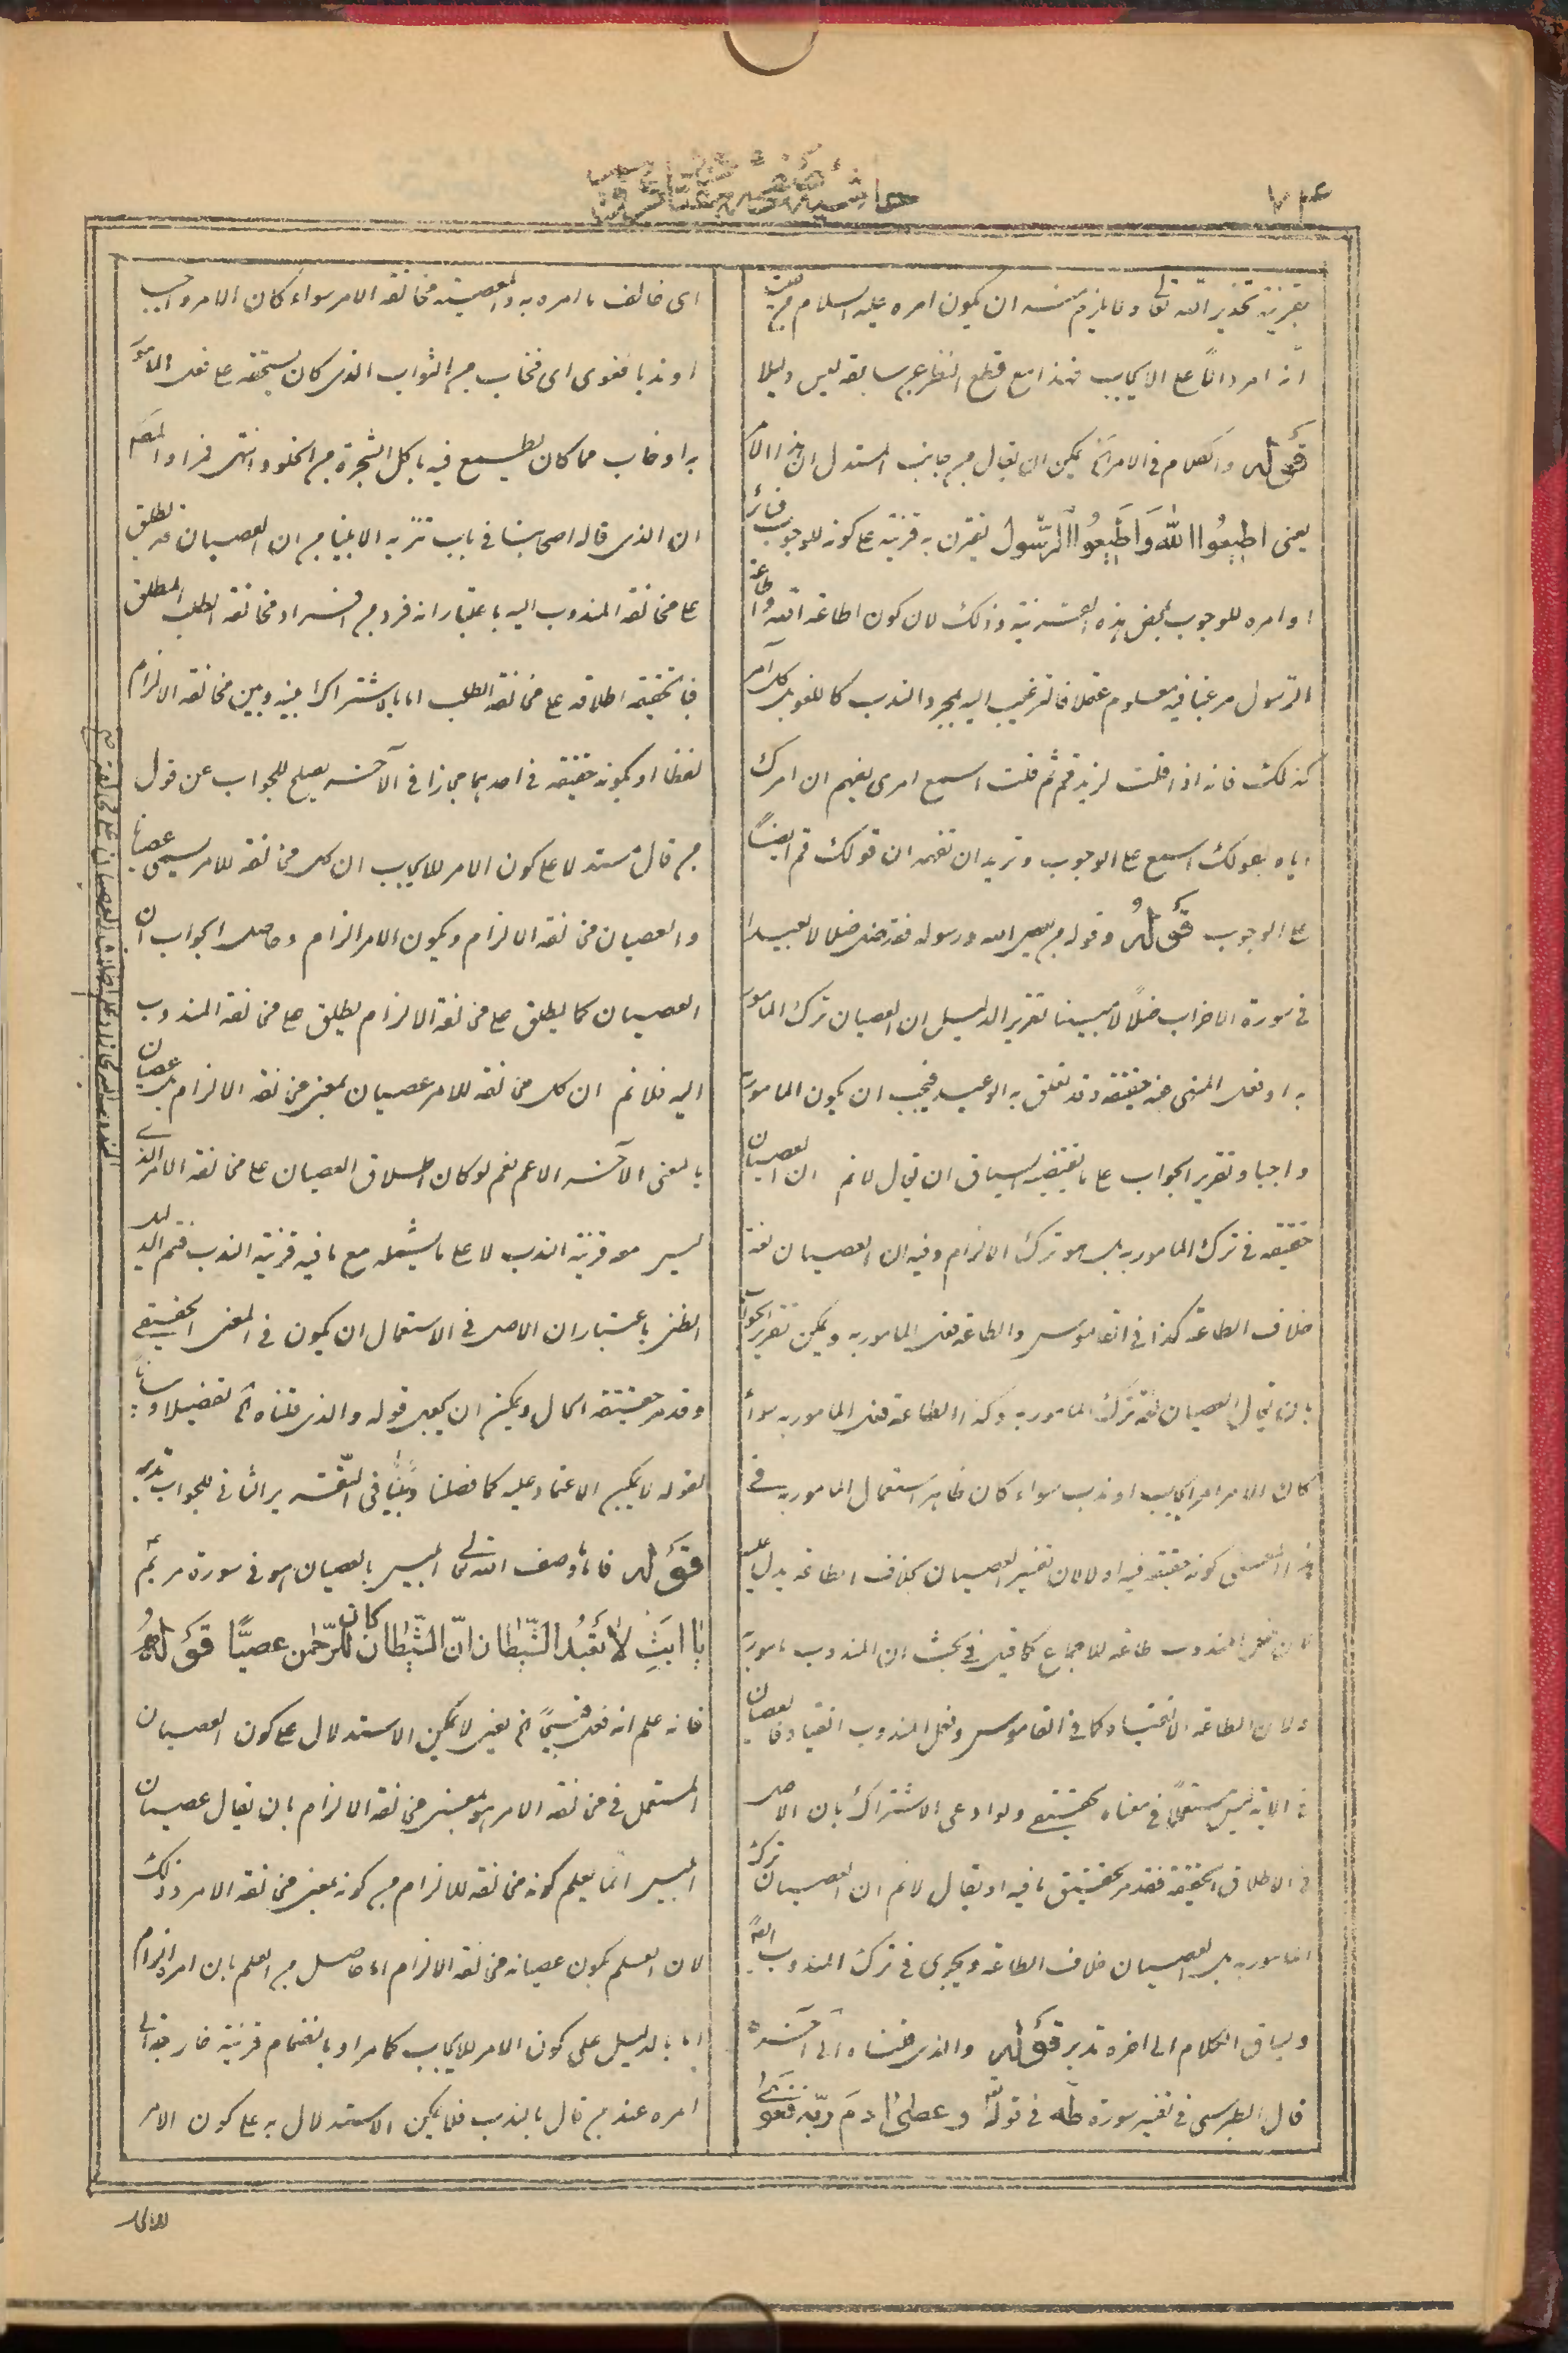 ٧٤
بقرينة تحذير الله تعالى وفايلزم منه ان يكون امره عليه السلام من حيث
انه امر دالا على الايجاب فهذا مع قطع النظر عن سابقه ليس دليلا
قوله والكلام في الامر الخ يمكن ان يقال من جانب المستدل ان هذا الامر
يعنى اطيعوا الله واطيعوا الرسول يقترن به قرينة على كونه للوجوب
او امره للوجوب بمحض هذه القرينة وذلك لان كون اطاعة الله واطاعة
الرسول مرغبا فيه معلوم عقلا فالترغيب اليه بمجرد الندب كاللغو بل كل آمر
كذلك فانه اذا قلت لزيد قم ثم قلت اسمع امرى يفهم ان امرك
اياه بقولك اسمع على الوجوب وتريد ان تفهمه ان قولك قم ايضا
على الوجوب قوله وقوله من يعص الله ورسوله فقد ضل ضلالا بعيدا
في سورة الاحزاب ضلالا مبينا تقرير الدليل ان العصيان ترك المامور
به او فعل المنهى عنه حقيقة وقد تعلق به الوعيد فيجب ان يكون المامور به
واجبا وتقرير الجواب على ما يقتضيه السياق ان يقال لا نم ان العصيان
حقيقة في ترك المامور به بل هو ترك الالزام وفيه ان العصيان لغة
خلاف الطاعة كذا في القاموس والطاعة فعل المامور به ويمكن تقرير الجواب
بان يقال العصيان لغة ترك المامور به وكذا الطاعة فعل المامور به سواء
كان الامر امر ايجاب او ندب سواء كان ظاهر استعمال المامور به في
هذا المعنى كونه حقيقة فيه او لا لان تفسير العصيان بخلاف الطاعة يدل عليه
لان فعل المندوب طاعة للاجماع كما قيل في بحث ان المندوب مامور به
ولان الطاعة الانقياد كما في القاموس وفعل المندوب انقياد فالعصيان
في الاية ليس مستعملا في معناه الحقيقي ولو ادعى الاشتراك بان الاصل
في الاطلاق الحقيقة فقد مر تحقيق ما فيه او يقال لا نم ان العصيان ترك
المامور به بل العصيان خلاف الطاعة ويجرى في ترك المندوب ايضا
ويساق الكلام الى اخره تدبر قوله والذى قلناه الى آخره
قال الطبرسى في تفسير سورة طه في قوله تعالى وعصى ادم ربه فغوى
اى خالف ما امره به والمعصية مخالفة الامر سواء كان الامر واجبا
او ندبا فغوى اى فخاب من الثواب الذى كان يستحقه على فعل المامور
به او خاب مما كان يطمع فيه باكل الشجرة من الخلود انتهى فمراد المصنف
ان الذى قاله اصحابنا في باب تنزيه الانبياء من ان العصيان قد يطلق
على مخالفة المندوب اليه باعتبار انه فرد من افراد مخالفة الطلب المطلق
فبالحقيقة اطلاقه على مخالفة الطلب اما بالاشتراك بينه وبين مخالفة الالزام
لفظا او بكونه حقيقة في احدهما مجازا في الآخر يصلح للجواب عن قول
من قال مستدلا على كون الامر للايجاب ان كل مخالفة للامر يسمى عصيانا
والعصيان مخالفة الالزام ويكون الامر الزام وحاصل الجواب ان
العصيان كما يطلق على مخالفة الالزام يطلق على مخالفة المندوب
اليه فلا نم ان كل مخالفة للامر عصيان بمعنى مخالفة الالزام بل عصيان
بالمعنى الآخر الاعم نعم لو كان اطلاق العصيان على مخالفة الامر الذى
ليس معه قرينة الندب لا على ما يشمله مع ما فيه قرينة الندب فتم الدليل
الظنى باعتبار ان الاصل في الاستعمال ان يكون في المعنى الحقيقي
وقد مر حقيقة الحال ويمكن ان يكون قوله والذى قلناه الخ تفصيلا وبيانا
لقوله لا يمكن الاعتماد عليه كما فصلنا
قوله فانما وصف الله تعالى ابليس بالعصيان هو في سورة مريم
يا ابت لا تعبد الشيطان ان الشيطان كان للرحمن عصيا قوله
فانه علم انه فعل قبيحا الخ يعنى لا يمكن الاستدلال على كون العصيان
المستعمل في مخالفة الامر هو بمعنى مخالفة الالزام بان يقال عصيان
ابليس انما يعلم كونه مخالفة للالزام من كونه بمعنى مخالفة الامر وذلك
لان العلم بكون عصيانه مخالفة الالزام اما حاصل من العلم بان امره الزام
اما بالدليل على كون الامر للايجاب كما مر او بانضمام قرينة خارجة الى
امره عند من قال بالندب فلا يمكن الاستدلال به على كون الامر